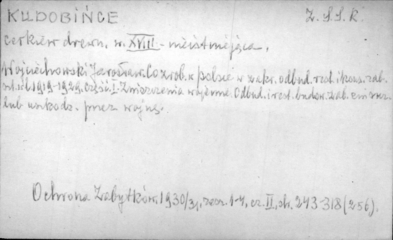 KUDOBIŃCE
Z.S.S.R.
cerkiew drewn. w. XVIII - nieistniejąca.
Wojciechowski Jarosław. Co zrob. w Polsce w zakr. odbud. rest. i kons. zab.
od r. 1919-1929. Część I. Zniszczenia wojenne. Odbud. i rest. budow. zab. znisz.
lub uszkodz. przez wojnę.
Ochrona Zabytków. 1930/31, zesz. 1-4, cz. II, str. 243-318 (256).